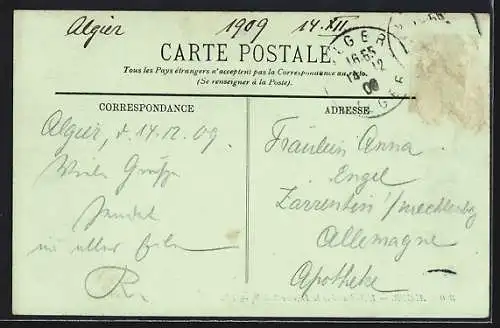 Algier 1909 14. XII.
CARTE POSTALE
Tous les Pays étrangers n'acceptent pas la Correspondance au recto.
(Se renseigner à la Poste).
ALGER
16 55
14 12
09
ALGER
CORRESPONDANCE
ADRESSE
Algier, d. 14.12.09.
Viele Grüße
sendet
in aller Eile
Fräulein Anna
Engel
Zarrentin / Mecklenbg
Allemagne
Apotheke